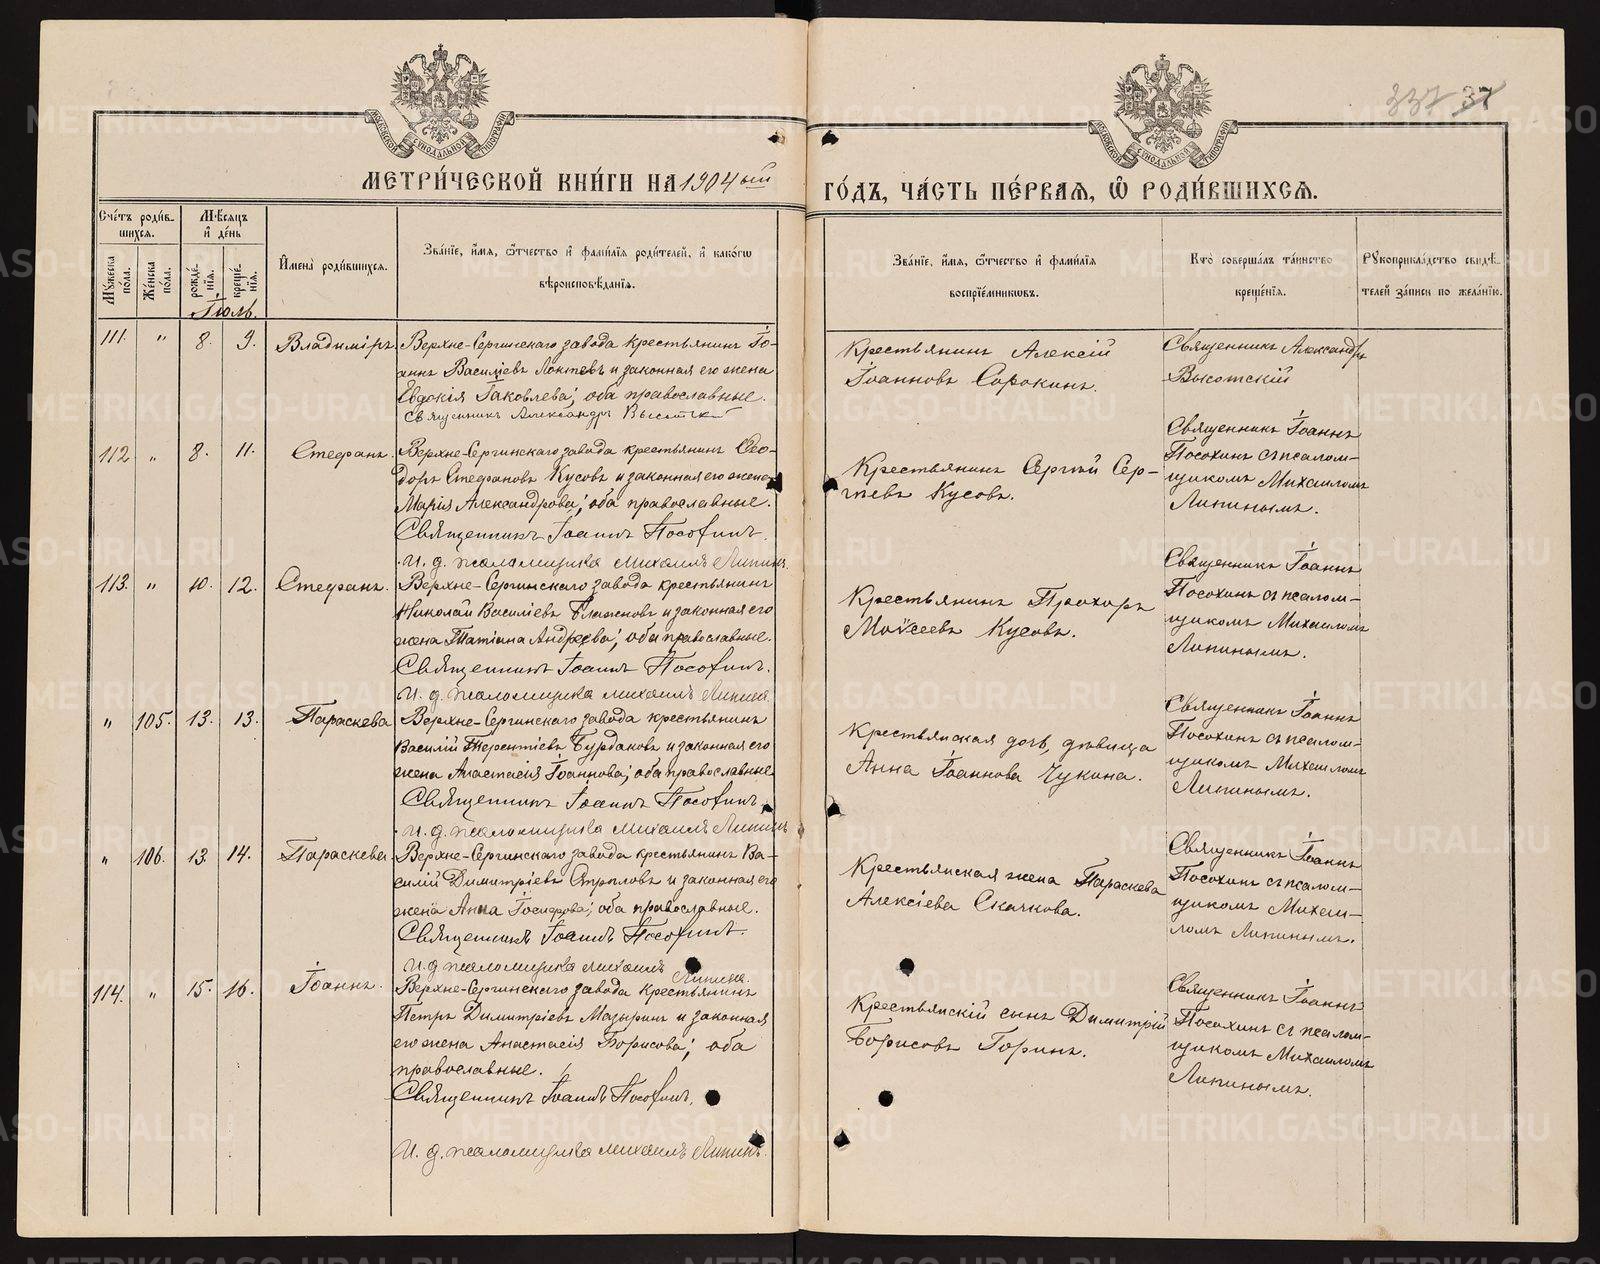 337 37
МОСКОВСКОЙ СѴНОДАЛЬНОЙ ТИПОГРАФІИ
МОСКОВСКОЙ СѴНОДАЛЬНОЙ ТИПОГРАФІИ
МЕТРИ́ЧЕСКОЙ КНИ́ГИ НА 1904ый ГО́ДЪ, ЧА́СТЬ ПЕ́РВАЯ, Ѡ РОДИ́ВШИХСЯ.
Сче́тъ роди́в-
шихся.
Мꙋ́жеска по́ла.
Же́нска по́ла.
Мѣ́сяцъ
и де́нь
рожде́-
нїя.
креще́-
нїя.
Имена̀ роди́вшихся.
Зва́нїе, и́мя, ѻ́тчество и фами́лїя роди́телей, и како́гѡ
вѣроисповѣ́данїя.
Зва́нїе, и́мя, ѻ́тчество и фами́лїя
воспрїе́мникѡвъ.
Кто̀ соверша́лъ та́инство
креще́нїя.
Рꙋкоприкла́дство свидѣ́-
телей за́писи по жела́нїю.
Іюль.
111. " 8. 9. Владиміръ.
Верхне-Сергинскаго завода крестьянинъ Іо-
аннъ Василіевъ Локтевъ и законная его жена
Евдокія Іаковлева; оба православные.
Священникъ Александръ Высотскій
Крестьянинъ Алексій
Іоанновъ Сорокинъ.
Священникъ Александръ
Высотскій
112 " 8. 11. Стефанъ.
Верхне-Сергинскаго завода крестьянинъ Ѳео-
доръ Стефановъ Кусовъ и законная его жена
Марія Александрова; оба православные.
Священникъ Іоаннъ Посохинъ.
И. д. псаломщика Михаилъ Липинъ.
Крестьянинъ Сергѣй Сер-
гѣевъ Кусовъ.
Священникъ Іоаннъ
Посохинъ съ псалом-
щикомъ Михаиломъ
Липинымъ.
113. " 10. 12. Стефанъ.
Верхне-Сергинскаго завода крестьянинъ
Николай Василіевъ и законная его
жена Татіана Андреева; оба православные.
Священникъ Іоаннъ Посохинъ.
И. д. псаломщика Михаилъ Липинъ
Крестьянинъ Прохоръ
Моѵсеевъ Кусовъ.
Священникъ Іоаннъ
Посохинъ съ псалом-
щикомъ Михаиломъ
Липинымъ.
" 105. 13. 13. Параскева
Верхне-Сергинскаго завода крестьянинъ
Василій Терентіевъ Бурдаковъ и законная его
жена Анастасія Іоаннова; оба православные
Священникъ Іоаннъ Посохинъ.
И. д. псаломщика Михаилъ Липинъ
Крестьянская дочь, дѣвица
Анна Іоаннова Чукина.
Священникъ Іоаннъ
Посохинъ съ псалом-
щикомъ Михаиломъ
Липинымъ.
" 106. 13. 14. Параскева.
Верхне-Сергинскаго завода крестьянинъ Ва-
силій Димитріевъ Стрѣловъ и законная его
жена Анна Іосифова; оба православные.
Священникъ Іоаннъ Посохинъ.
И. д. псаломщика Михаилъ Липинъ.
Крестьянская жена Параскева
Алексіева Скачкова.
Священникъ Іоаннъ
Посохинъ съ псалом-
щикомъ Михаи-
ломъ Липинымъ.
114. " 15. 16. Іоаннъ.
Верхне-Сергинскаго завода крестьянинъ
Петръ Димитріевъ Мазуринъ и законная
его жена Анастасія Борисова; оба
православные.
Священникъ Іоаннъ Посохинъ.
И. д. псаломщика Михаилъ Липинъ.
Крестьянскій сынъ Димитрій
Борисовъ Горинъ.
Священникъ Іоаннъ
Посохинъ съ псалом-
щикомъ Михаиломъ
Липинымъ.
METRIKI.GASO-URAL.RU